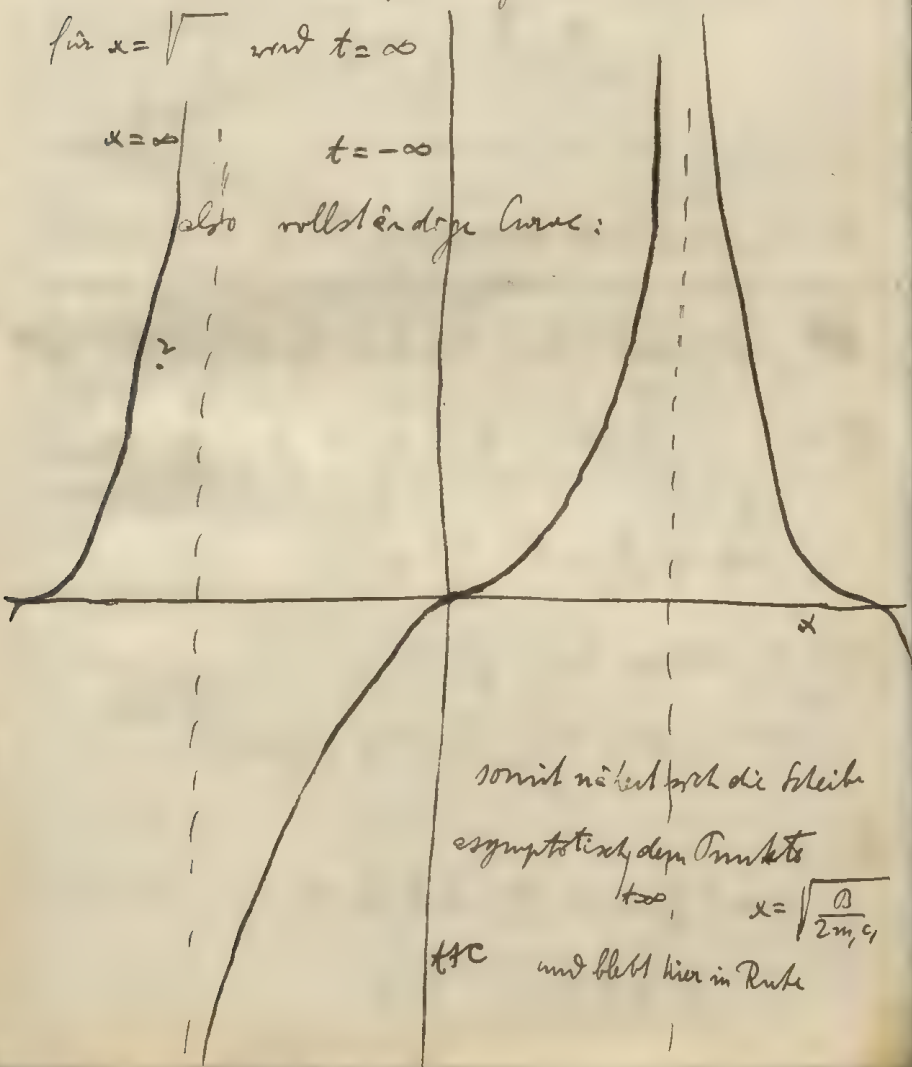 für x = √ wird t = ∞
x = ∞ t = -∞
also vollständige Curve:
?
x
somit nähert sich die Scheibe
asymptotisch dem Punkte
t=∞
x = √(B/2m,c,)
t+C
und bleibt hier in Ruhe